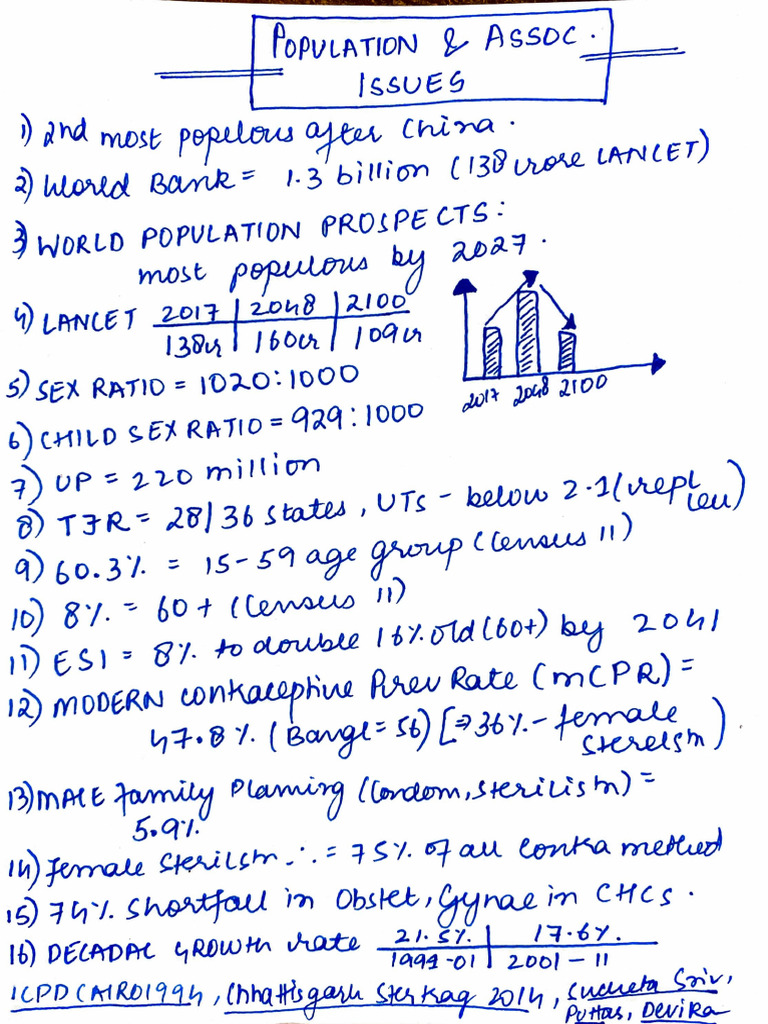 POPULATION & ASSOC.
ISSUES
1) 2nd most populous after China.
2) World Bank = 1.3 billion (138 crore LANCET)
3) WORLD POPULATION PROSPECTS:
most populous by 2027.
4) LANCET 2017 | 2048 | 2100
138cr | 160cr | 109cr
2017 2048 2100
5) SEX RATIO = 1020:1000
6) CHILD SEX RATIO = 929:1000
7) UP = 220 million
8) TFR = 28/36 states, UTs - below 2.1 (repl
lev)
9) 60.3% = 15-59 age group (Census 11)
10) 8% = 60+ (Census 11)
11) ESI = 8% to double 16% old (60+) by 2041
12) MODERN Contraceptive Prev Rate (mCPR) =
47.8% (Bangl = 56) [⇒ 36% - female
sterelsm)
13) MALE family Planning (Condom, sterilism) =
5.9%
14) female sterilsm ∴ = 75% of all contra method
15) 74% shortfall in Obstet, Gynae in CHCS.
16) DECADAL GROWTH rate 21.5% | 17.6%.
1991-01 | 2001-11
ICPD CAIRO 1994, Chhattisgarh Ster Trag 2014, Sucheta Sriv,
Puttas, Devika